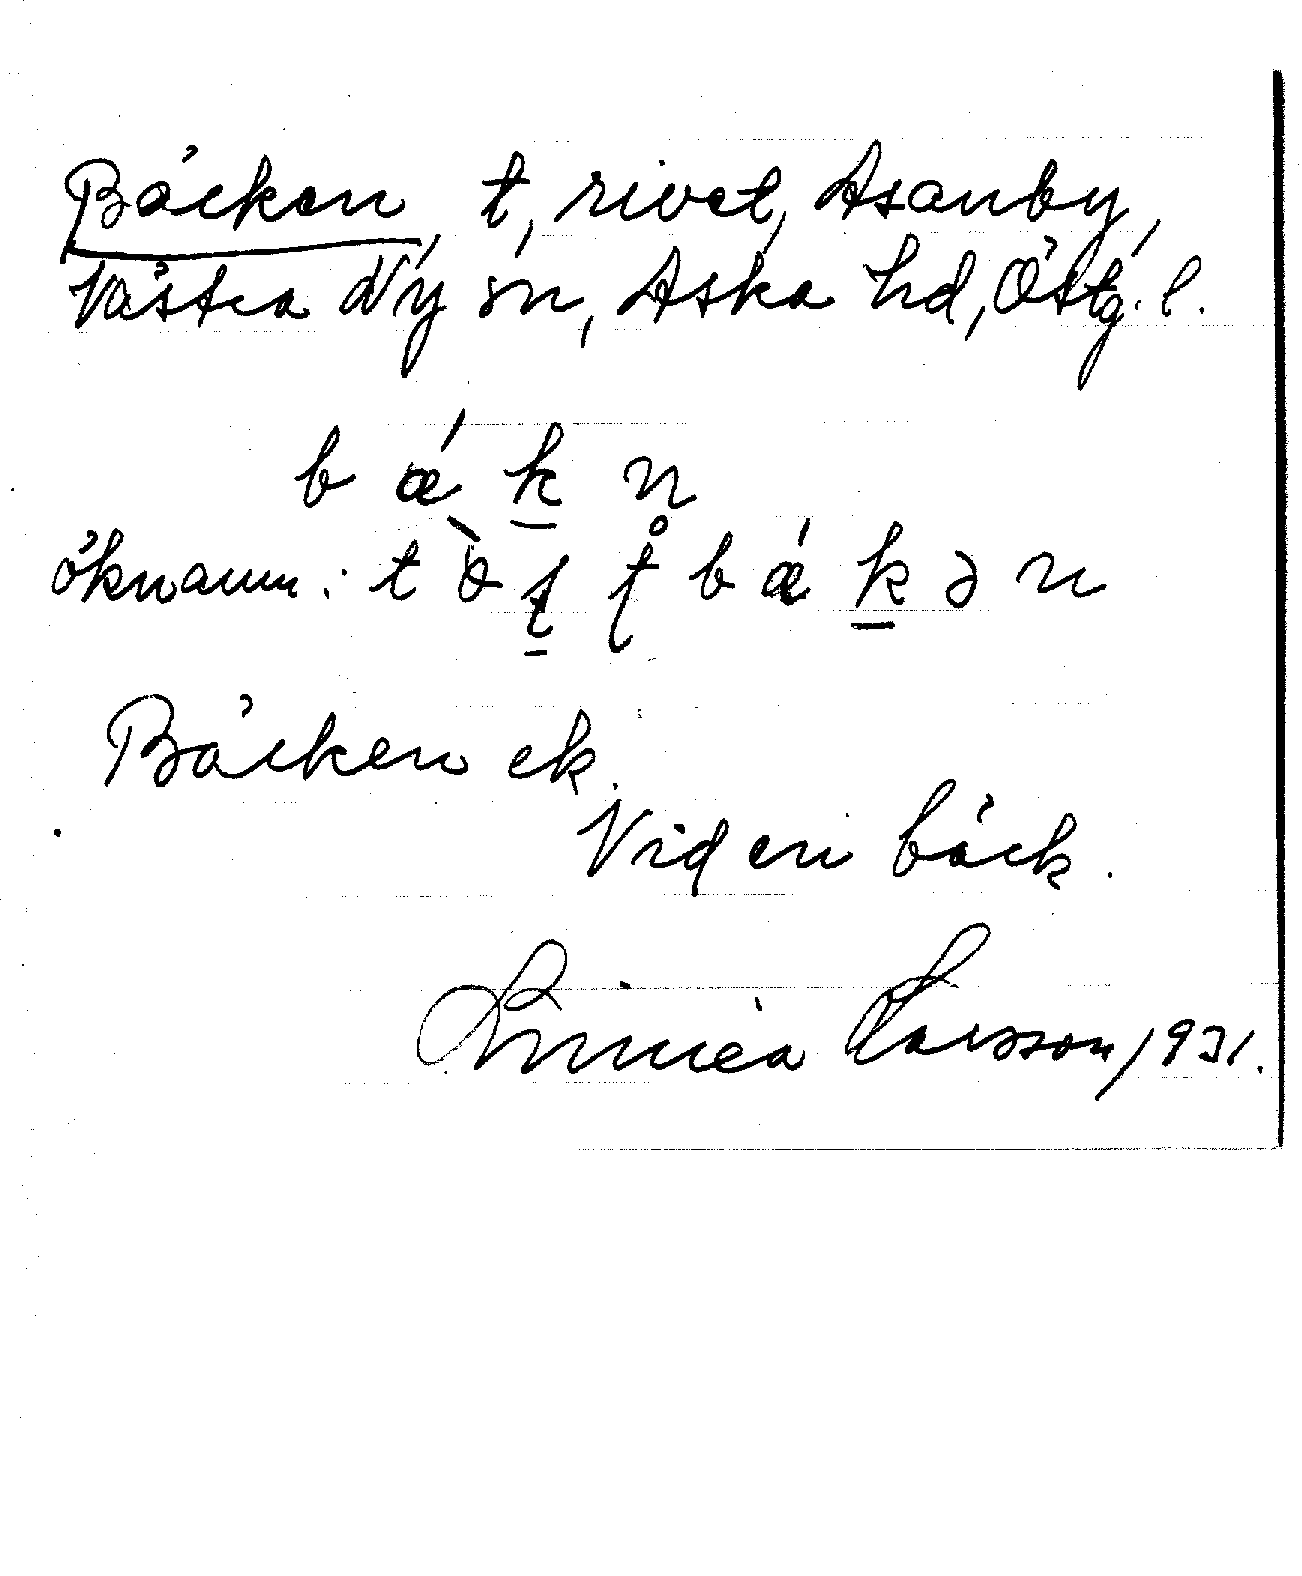 Bäcken, t, rivet, Asanby,
Västra Ny sn, Aska hd, Östg. l.
b ǽ k̠ n̥
öknamn: t ɵ̀ b ǽ k̠ ə n
Bäcken ek.
Vid en bäck.
Linnéa Larsson 1931.